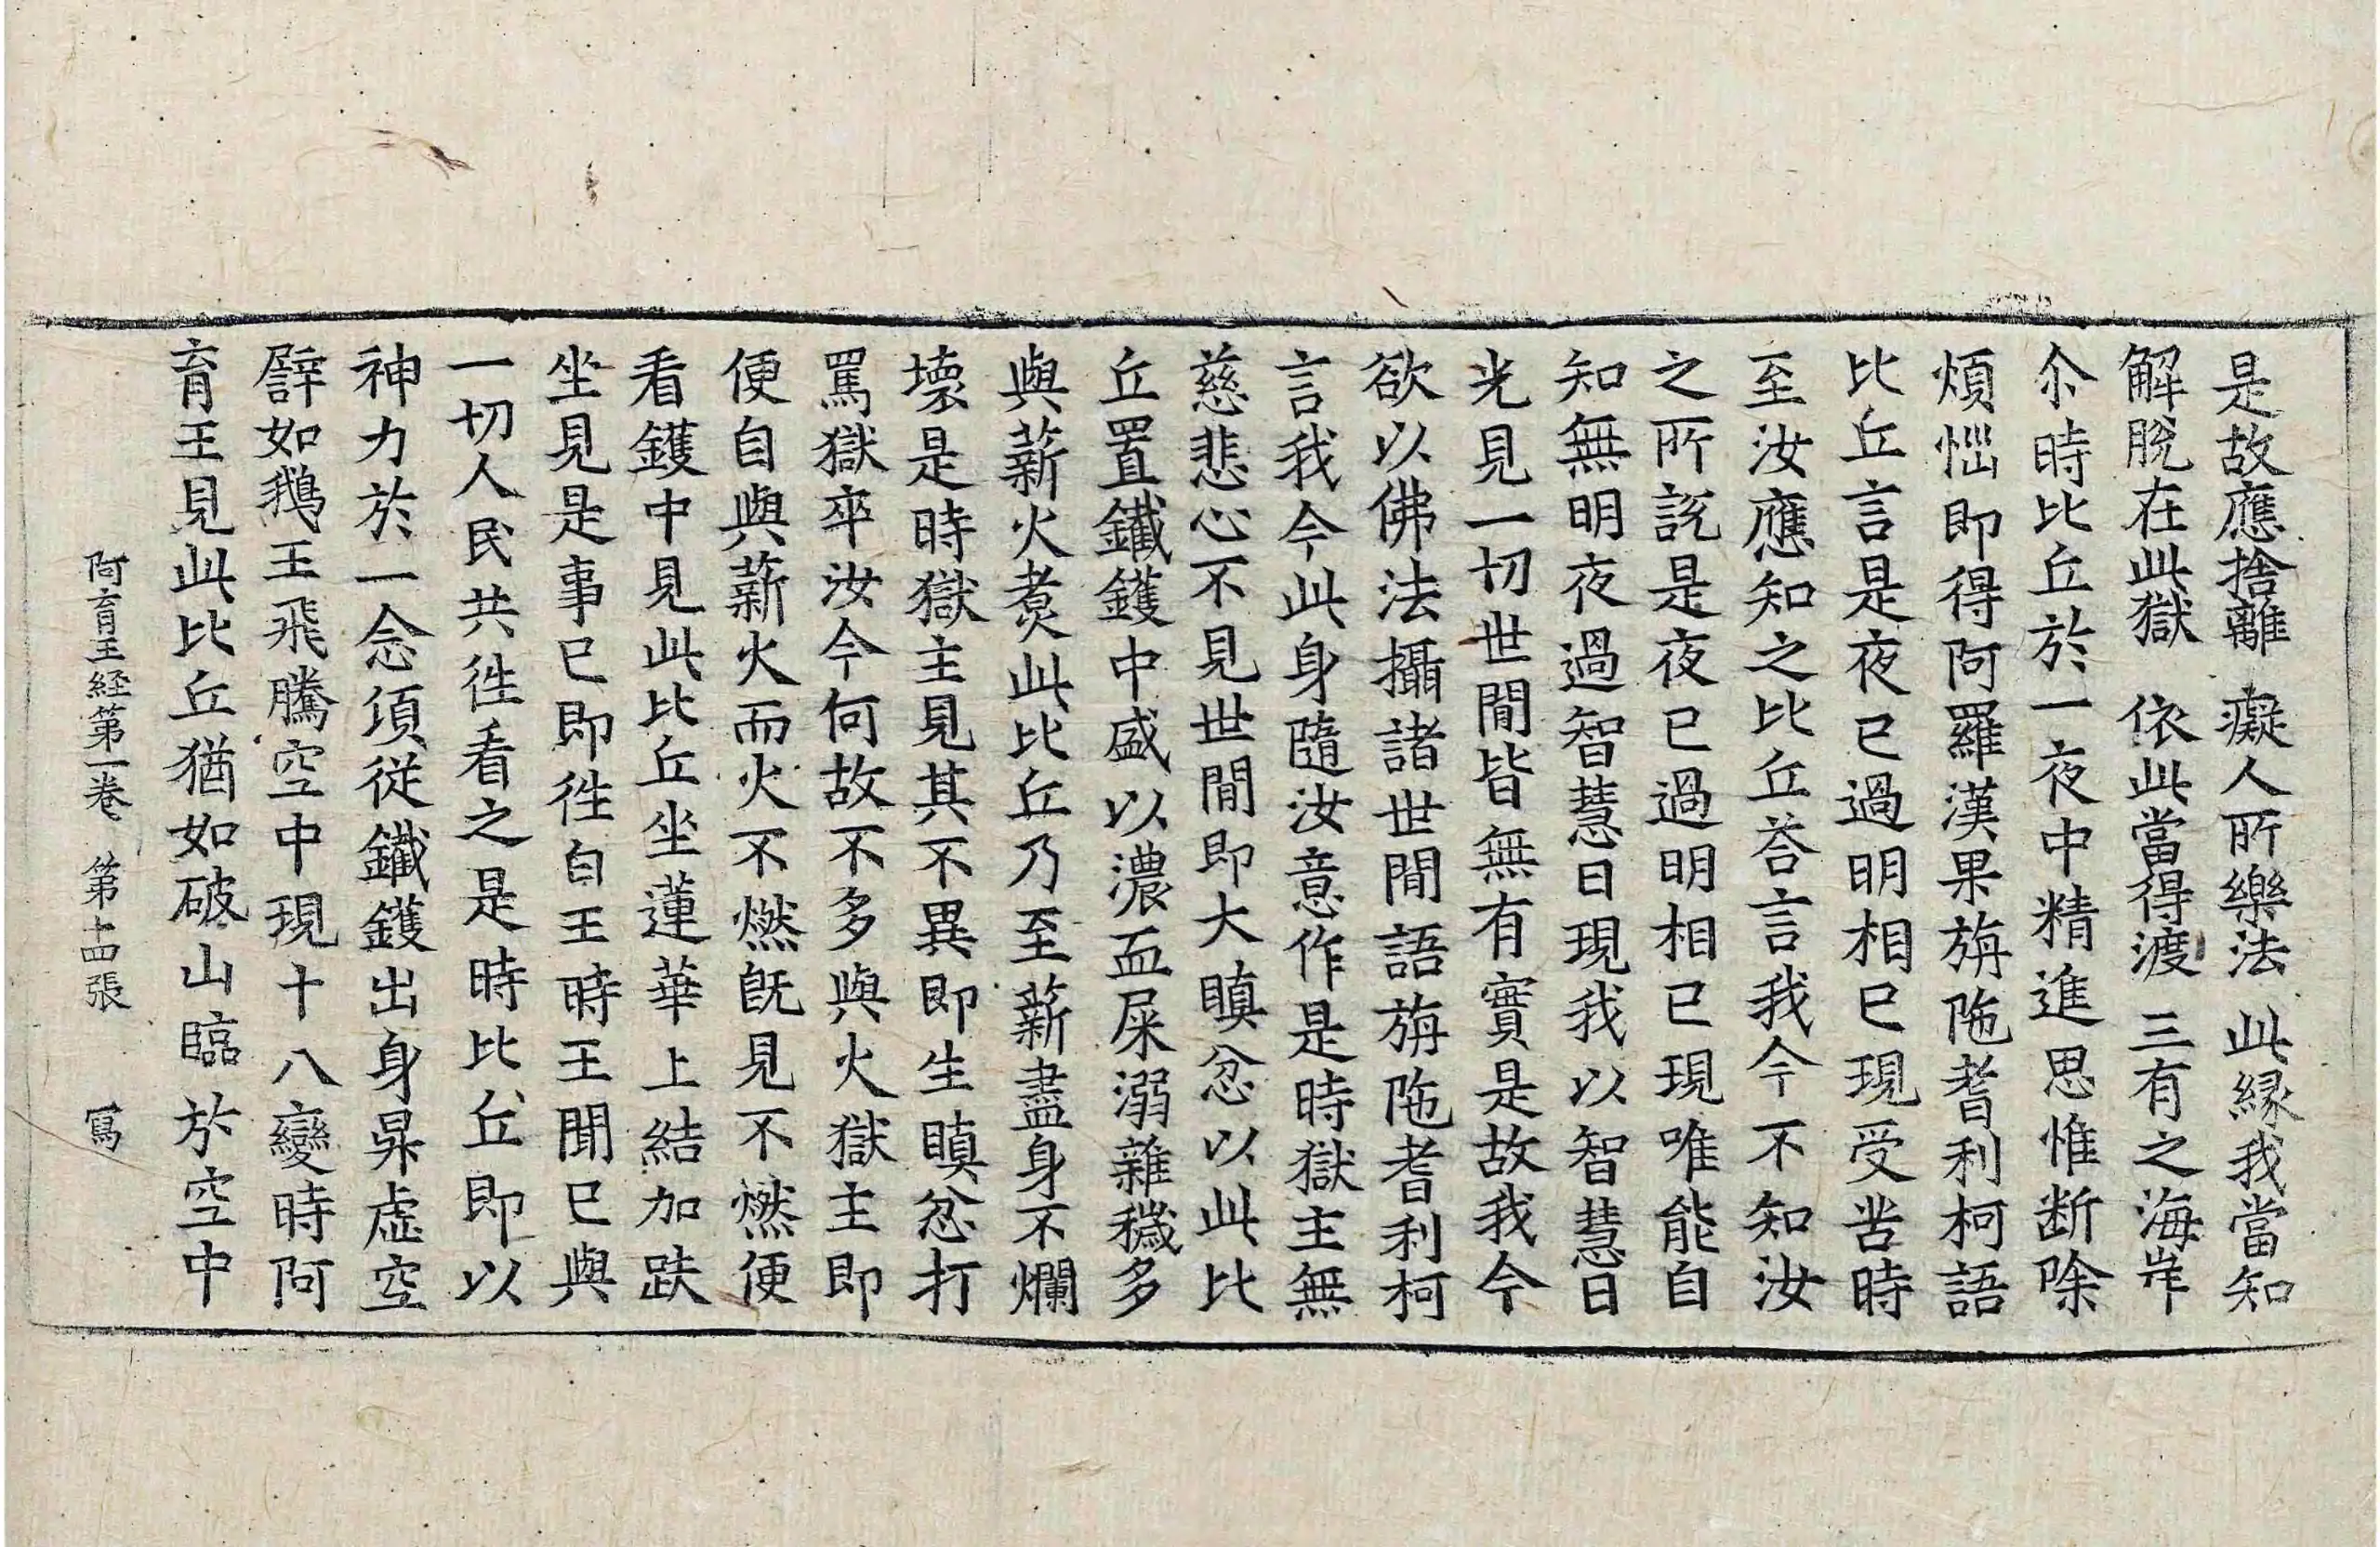 是故應捨離　癡人所樂法　此縁我當知
解脫在此獄　依此當得渡　三有之海岸
尒時比丘於一夜中精進思惟断除
煩惱即得阿羅漢果旃陁耆利柯語
比丘言是夜已過明相已現受苦時
至汝應知之比丘荅言我今不知汝
之所說是夜已過明相已現唯能自
知無明夜過智慧日現我以智慧日
光見一切世間皆無有實是故我今
欲以佛法攝諸世間語旃陁耆利柯
言我今此身隨汝意作是時獄主無
慈悲心不見世間即大瞋忿以此比
丘置鐵鑊中盛以濃血屎溺雜穢多
與薪火煑此比丘乃至薪盡身不爛
壞是時獄主見其不異即生瞋忿打
罵獄卒汝今何故不多與火獄主即
便自與薪火而火不燃旣見不燃便
看鑊中見此比丘坐蓮華上結加趺
坐見是事已即徃白王時王聞已與
一切人民共徃看之是時比丘即以
神力於一念頃従鐵鑊出身昇虛空
譬如鵝王飛騰空中現十八變時阿
育王見此比丘猶如破山臨於空中
阿育王経第一卷　第十四張　寫